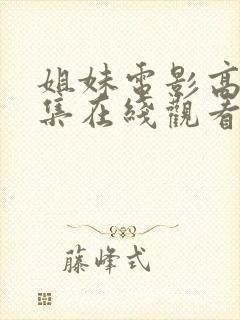 姐妹電影高
集在綫觀看
藤峰式